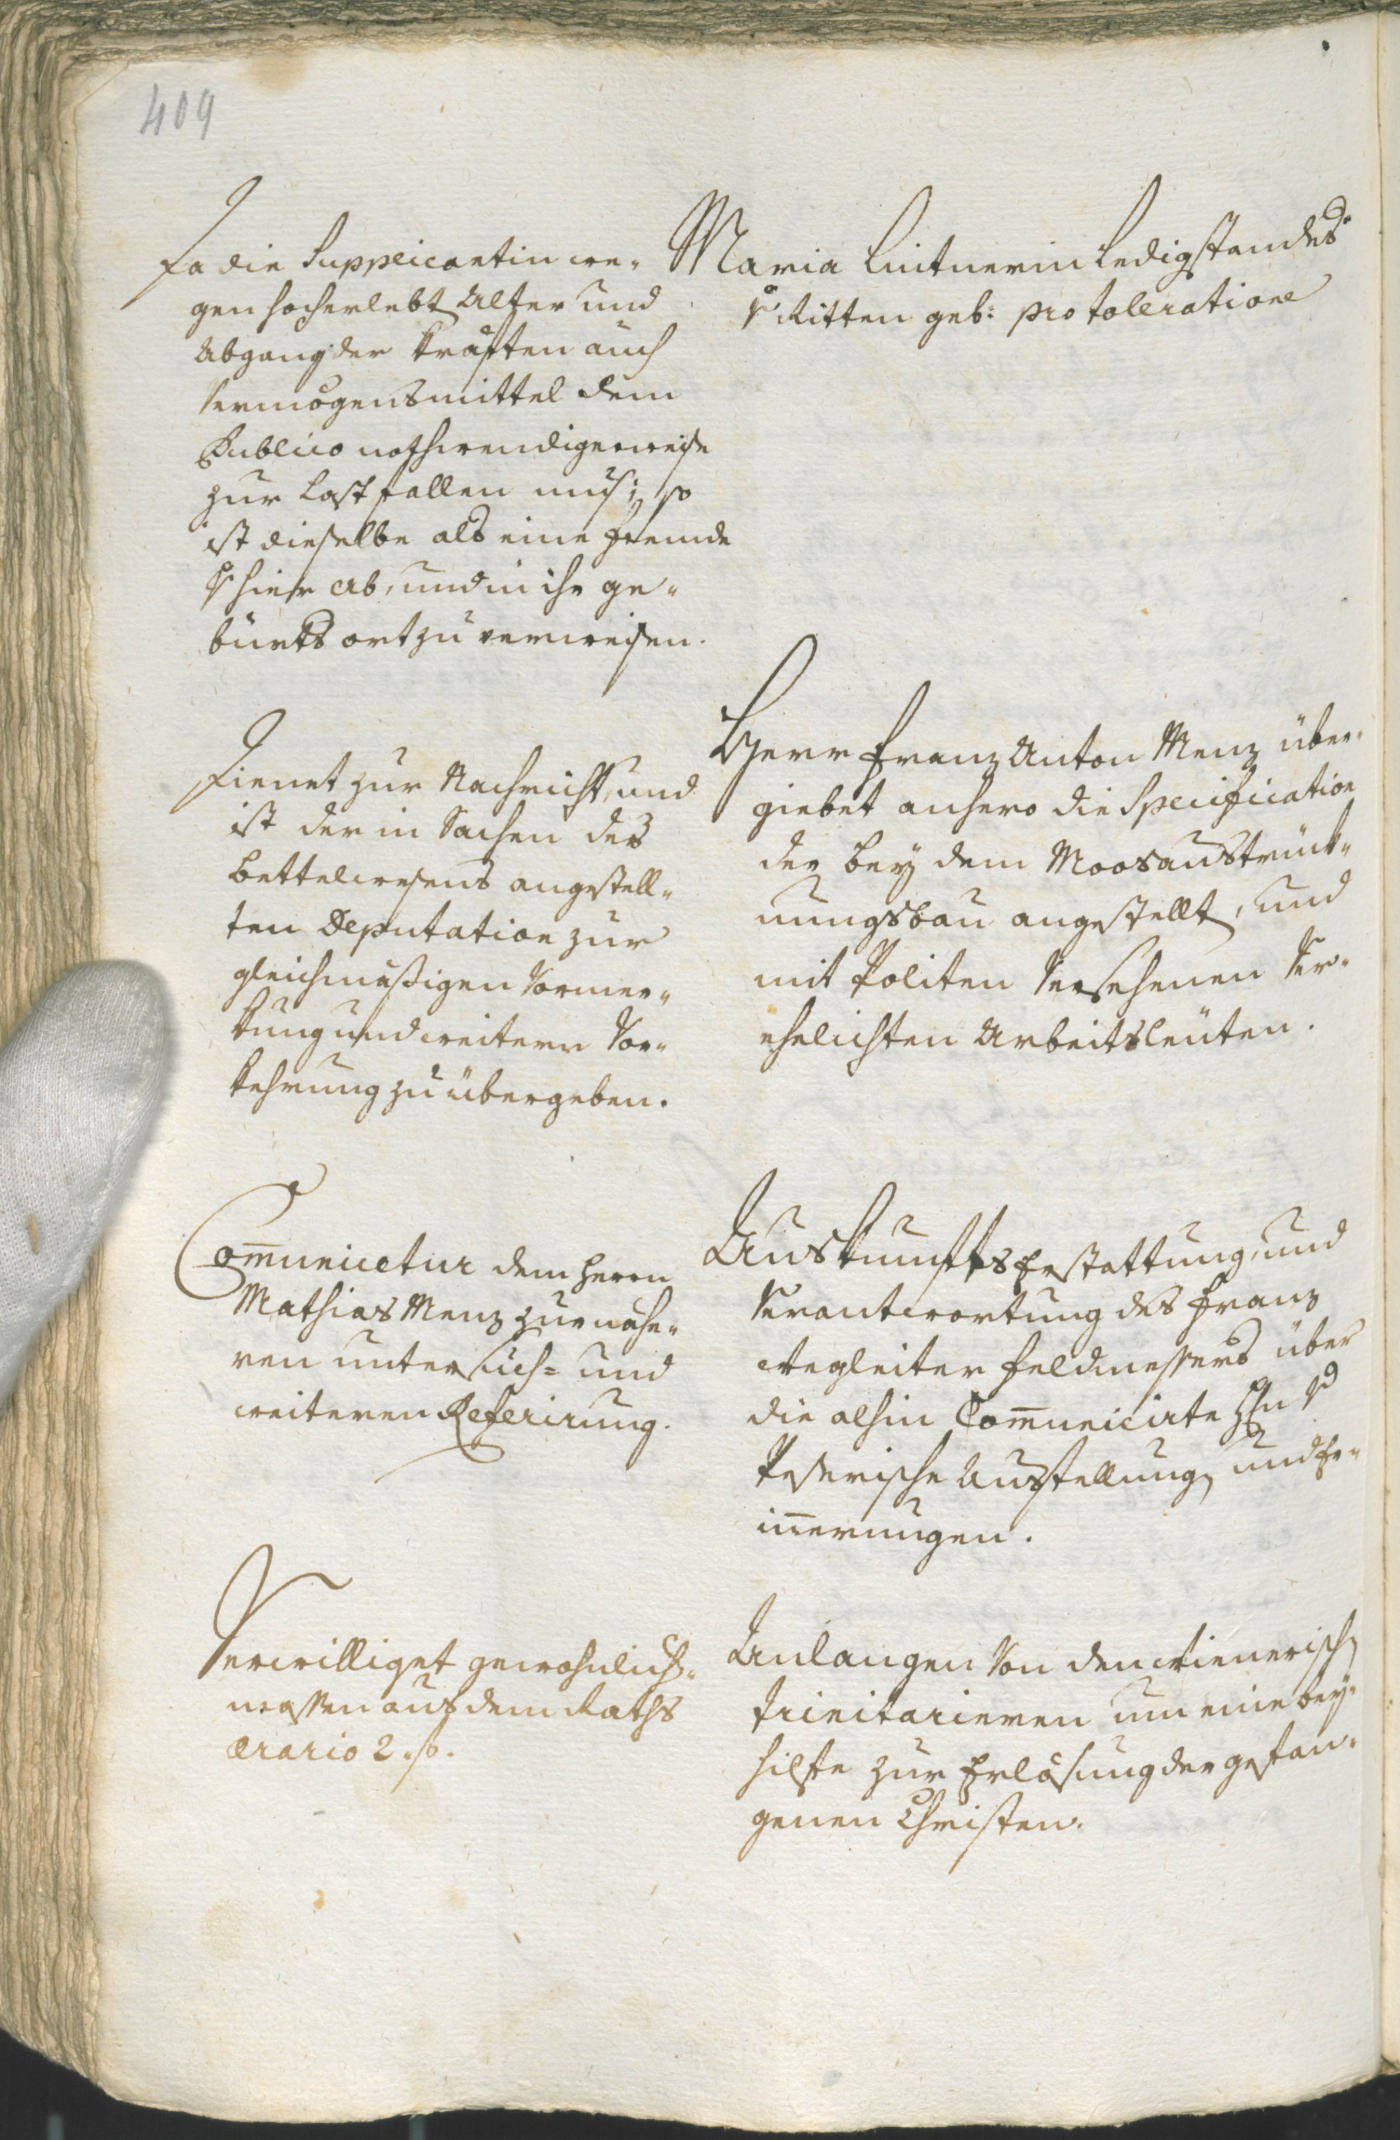 409
Da die Supplicantin we-
gen hocherlebt Alter und
Abgang der kräften auch
Vermögensmittel dem
Publico nothwendigerweise
zur Last fallen mus; so
ist dieselbe als eine Fremde
v hier ab, und in ihr ge-
burts ort zu verweisen.
Maria Lintnerin Ledigstandes
v Ritten geb: pro toleratione
Dienet zur Nachricht, und
ist der in Sachen des
Bettelwesens angestell-
ten Deputation zur
gleichmäßigen Vormer-
kung und weitern Vor-
kehrung zu übergeben.
Herr Franz Anton Menz über-
giebet anhero die Specification
der bey dem Moosaustrück-
nungsbau angestellt, und
mit Politen Versehenen Ver-
ehelichten Arbeitsleüten.
Com̅unicetur dem Herrn
Mathias Menz zur nähe-
ren untersuch= und
weiteren Referirung.
Auskunftserstattung, und
Verantwortung des Franz
Wegleiter Feldmessers über
die alhin Com̅unicirte Hn v
Peserische Ausstellung, und Er-
in̅erungen.
Verwilliget gewohnlich-
massen aus dem Raths
ærario 2 f.
Anlangen Von den Wienerisch
Trinitarieren um eine bey-
hilfe zur Erlösung der gefan-
genen Christen.